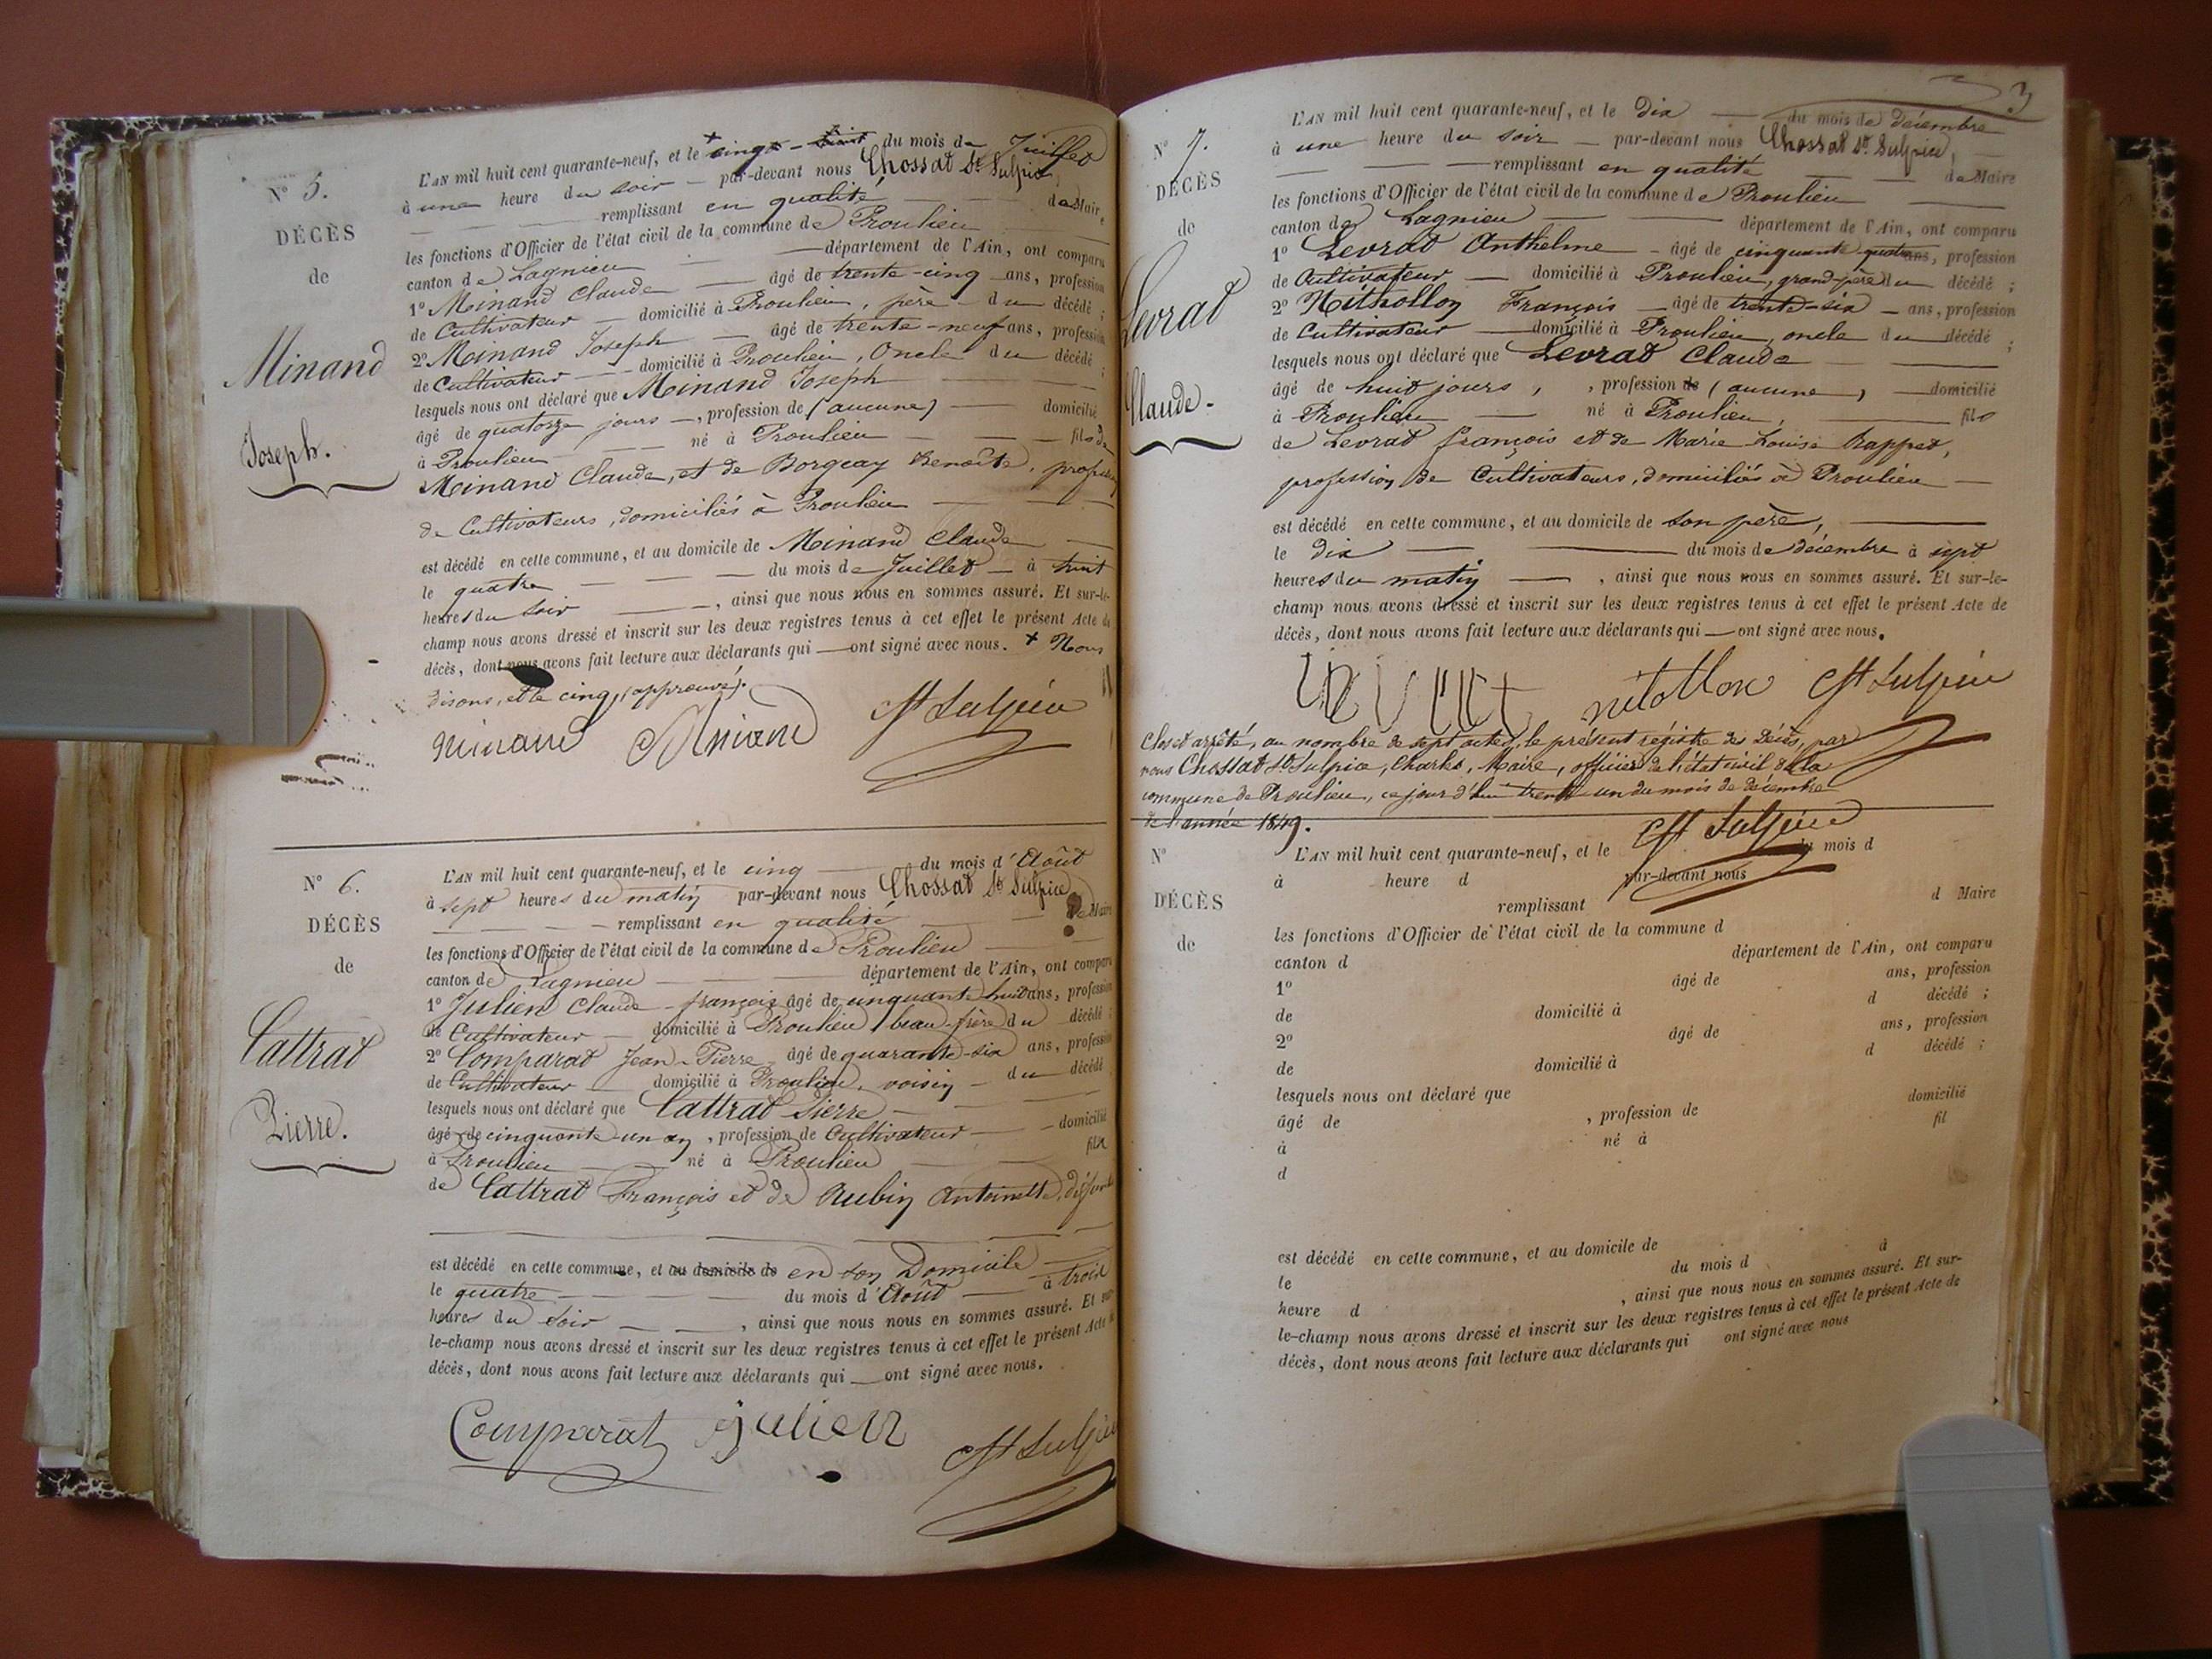 N° 5.
DÉCÈS
de
Minand
Joseph.
L'AN mil huit cent quarante-neuf, et le + cinq du mois de Juillet
à une heure du soir par-devant nous Chossat St. Sulpice,
remplissant en qualité de Maire
les fonctions d'Officier de l'état civil de la commune de Proulieu
canton de Lagnieu département de l'Ain, ont comparu
1° Minand Claude âgé de trente-cinq ans, profession
de Cultivateur domicilié à Proulieu, père du décédé ;
2° Minand Joseph âgé de trente-neuf ans, profession
de Cultivateur domicilié à Proulieu, Oncle du décédé ;
lesquels nous ont déclaré que Minand Joseph
âgé de quatorze jours, profession de (aucune) domicilié
à Proulieu né à Proulieu fils de
Minand Claude, et de Borgeay Benoîte, profession
de Cultivateurs, domiciliés à Proulieu
est décédé en cette commune, et au domicile de Minand Claude
le quatre du mois de Juillet à
heures du soir, ainsi que nous nous en sommes assuré. Et sur-le-
champ nous avons dressé et inscrit sur les deux registres tenus à cet effet le présent Acte de
décès, dont nous avons fait lecture aux déclarants qui ont signé avec nous. + Nous
disons, et le cinq, (approuvé).
minand Minand Ch St Sulpice
N° 6.
DÉCÈS
de
Cattrat
Pierre.
L'AN mil huit cent quarante-neuf, et le cinq du mois d'Août
à sept heures du matin par-devant nous Chossat St Sulpice
remplissant en qualité de Maire
les fonctions d'Officier de l'état civil de la commune de Proulieu
canton de Lagnieu département de l'Ain, ont comparu
1° Julien Claude-françois âgé de cinquante huit ans, profession
de Cultivateur domicilié à Proulieu beau-frère du décédé ;
2° Comparat Jean-Pierre âgé de quarante-six ans, profession
de Cultivateur domicilié à Proulieu, voisin du décédé
lesquels nous ont déclaré que Cattrat Pierre
âgé de cinquante un an, profession de Cultivateur domicilié
à Proulieu né à Proulieu fils
de Cattrat François et de Aubin Antoinette, défunts
est décédé en cette commune, et au domicile de en son Domicile
le quatre du mois d'Août à trois
heures du soir, ainsi que nous nous en sommes assuré. Et sur-
le-champ nous avons dressé et inscrit sur les deux registres tenus à cet effet le présent Acte de
décès, dont nous avons fait lecture aux déclarants qui ont signé avec nous.
Comparat julien Ch St Sulpice
3
N° 7.
DÉCÈS
de
Levrat
Claude.
L'AN mil huit cent quarante-neuf, et le dix du mois de décembre
à une heure du soir par-devant nous Chossat St. Sulpice,
remplissant en qualité de Maire
les fonctions d'Officier de l'état civil de la commune de Proulieu
canton de Lagnieu département de l'Ain, ont comparu
1° Levrat Anthelme âgé de cinquante quatre ans, profession
de Cultivateur domicilié à Proulieu, grand-père du décédé ;
2° Nithollon François âgé de trente-six ans, profession
de Cultivateur domicilié à Proulieu, oncle du décédé ;
lesquels nous ont déclaré que Levrat Claude
âgé de huit jours, , profession de (aucune) domicilié
à Proulieu né à Proulieu, fils
de Levrat françois et de Marie Louise Rappet,
profession de Cultivateurs, domiciliés à Proulieu
est décédé en cette commune, et au domicile de son père,
le dix du mois de décembre à sept
heures du matin, ainsi que nous nous en sommes assuré. Et sur-le-
champ nous avons dressé et inscrit sur les deux registres tenus à cet effet le présent Acte de
décès, dont nous avons fait lecture aux déclarants qui ont signé avec nous.
nitollon Ch St Sulpice
Clos et arrêté, au nombre de sept actes, le présent régistre des Décès, par
nous Chossat St Sulpice, Charles, Maire, officier de l'état civil de la
commune de Proulieu, ce jour d'hui trente un du mois de décembre
de l'année 1849.
Ch St Sulpice
N°
DÉCÈS
de
L'AN mil huit cent quarante-neuf, et le du mois d
à heure d par-devant nous
remplissant d Maire
les fonctions d'Officier de l'état civil de la commune d
canton d département de l'Ain, ont comparu
1° âgé de ans, profession
de domicilié à d décédé ;
2° âgé de ans, profession
de domicilié à d décédé ;
lesquels nous ont déclaré que
âgé de , profession de domicilié
à né à fil
d
est décédé en cette commune, et au domicile de
le du mois d à
heure d , ainsi que nous nous en sommes assuré. Et sur-
le-champ nous avons dressé et inscrit sur les deux registres tenus à cet effet le présent Acte de
décès, dont nous avons fait lecture aux déclarants qui ont signé avec nous